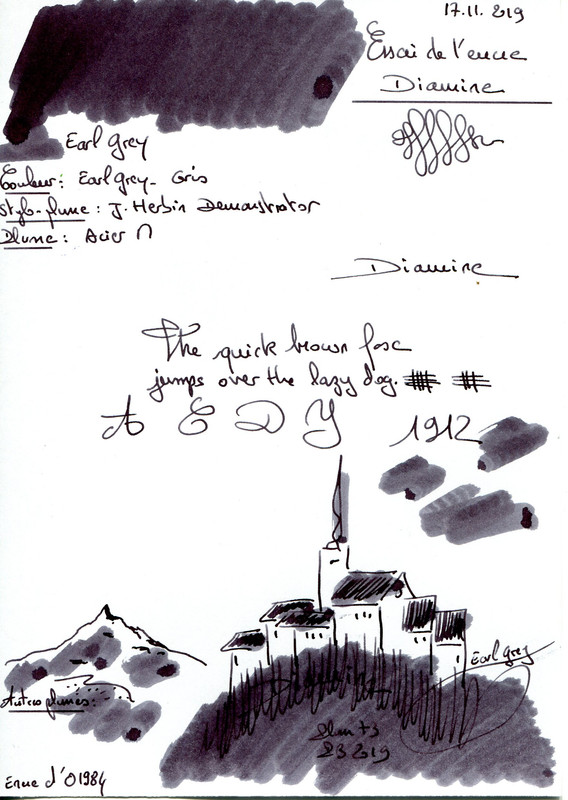 17.11.2019
Essai de l'encre
Diamine
Earl Grey
Couleur: Earl Grey - Gris
Stylo-plume: J. Herbin Demonstrator
Plume: Acier M
Diamine
The quick brown fox
jumps over the lazy dog.
A E D Y 1912
Earl Grey
Autres plumes:
2019
Encre d'O1984